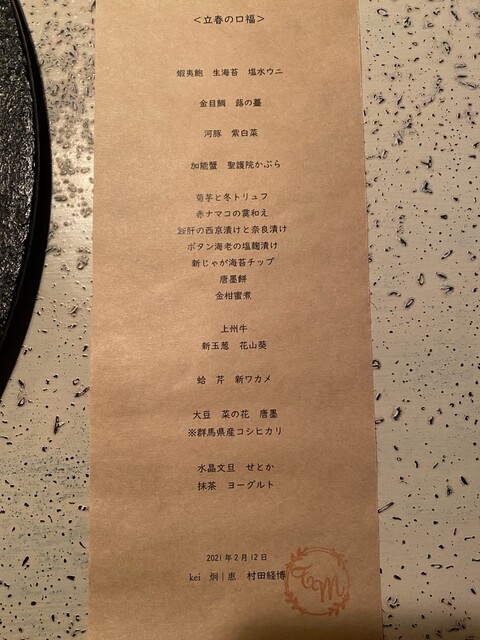 ＜立春の口福＞
蝦夷鮑　生海苔　塩水ウニ
金目鯛　蕗の薹
河豚　紫白菜
加能蟹　聖護院かぶら
菊芋と冬トリュフ
赤ナマコの霙和え
鮟肝の西京漬けと奈良漬け
ボタン海老の塩麹漬け
新じゃが海苔チップ
唐墨餅
金柑蜜煮
上州牛
新玉葱　花山葵
蛤　芹　新ワカメ
大豆　菜の花　唐墨
※群馬県産コシヒカリ
水晶文旦　せとか
抹茶　ヨーグルト
2021年2月12日
kei 炯|恵　村田経博